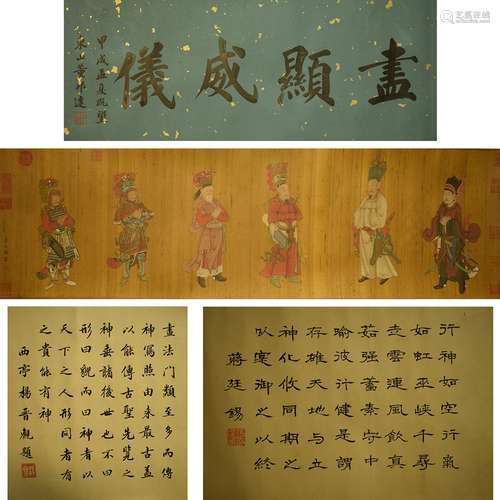 盡顯威儀
甲戌孟夏既望
東山董邦達
畫法門類至多而傳
神寫照由來最古蓋
以能傳古聖先覽之
神垂諸後世也不曰
形曰貌而曰神者以
天下之人形同者有
之貴能有神
西亭楊晉觀題
行神如空行氣
如虹巫峽千尋
走雲連風飲真
茹强蓄素守中
喻彼行健是謂
存雄天地與立
神化攸同期之
以寔御之以終
蔣廷錫
艺狐在线